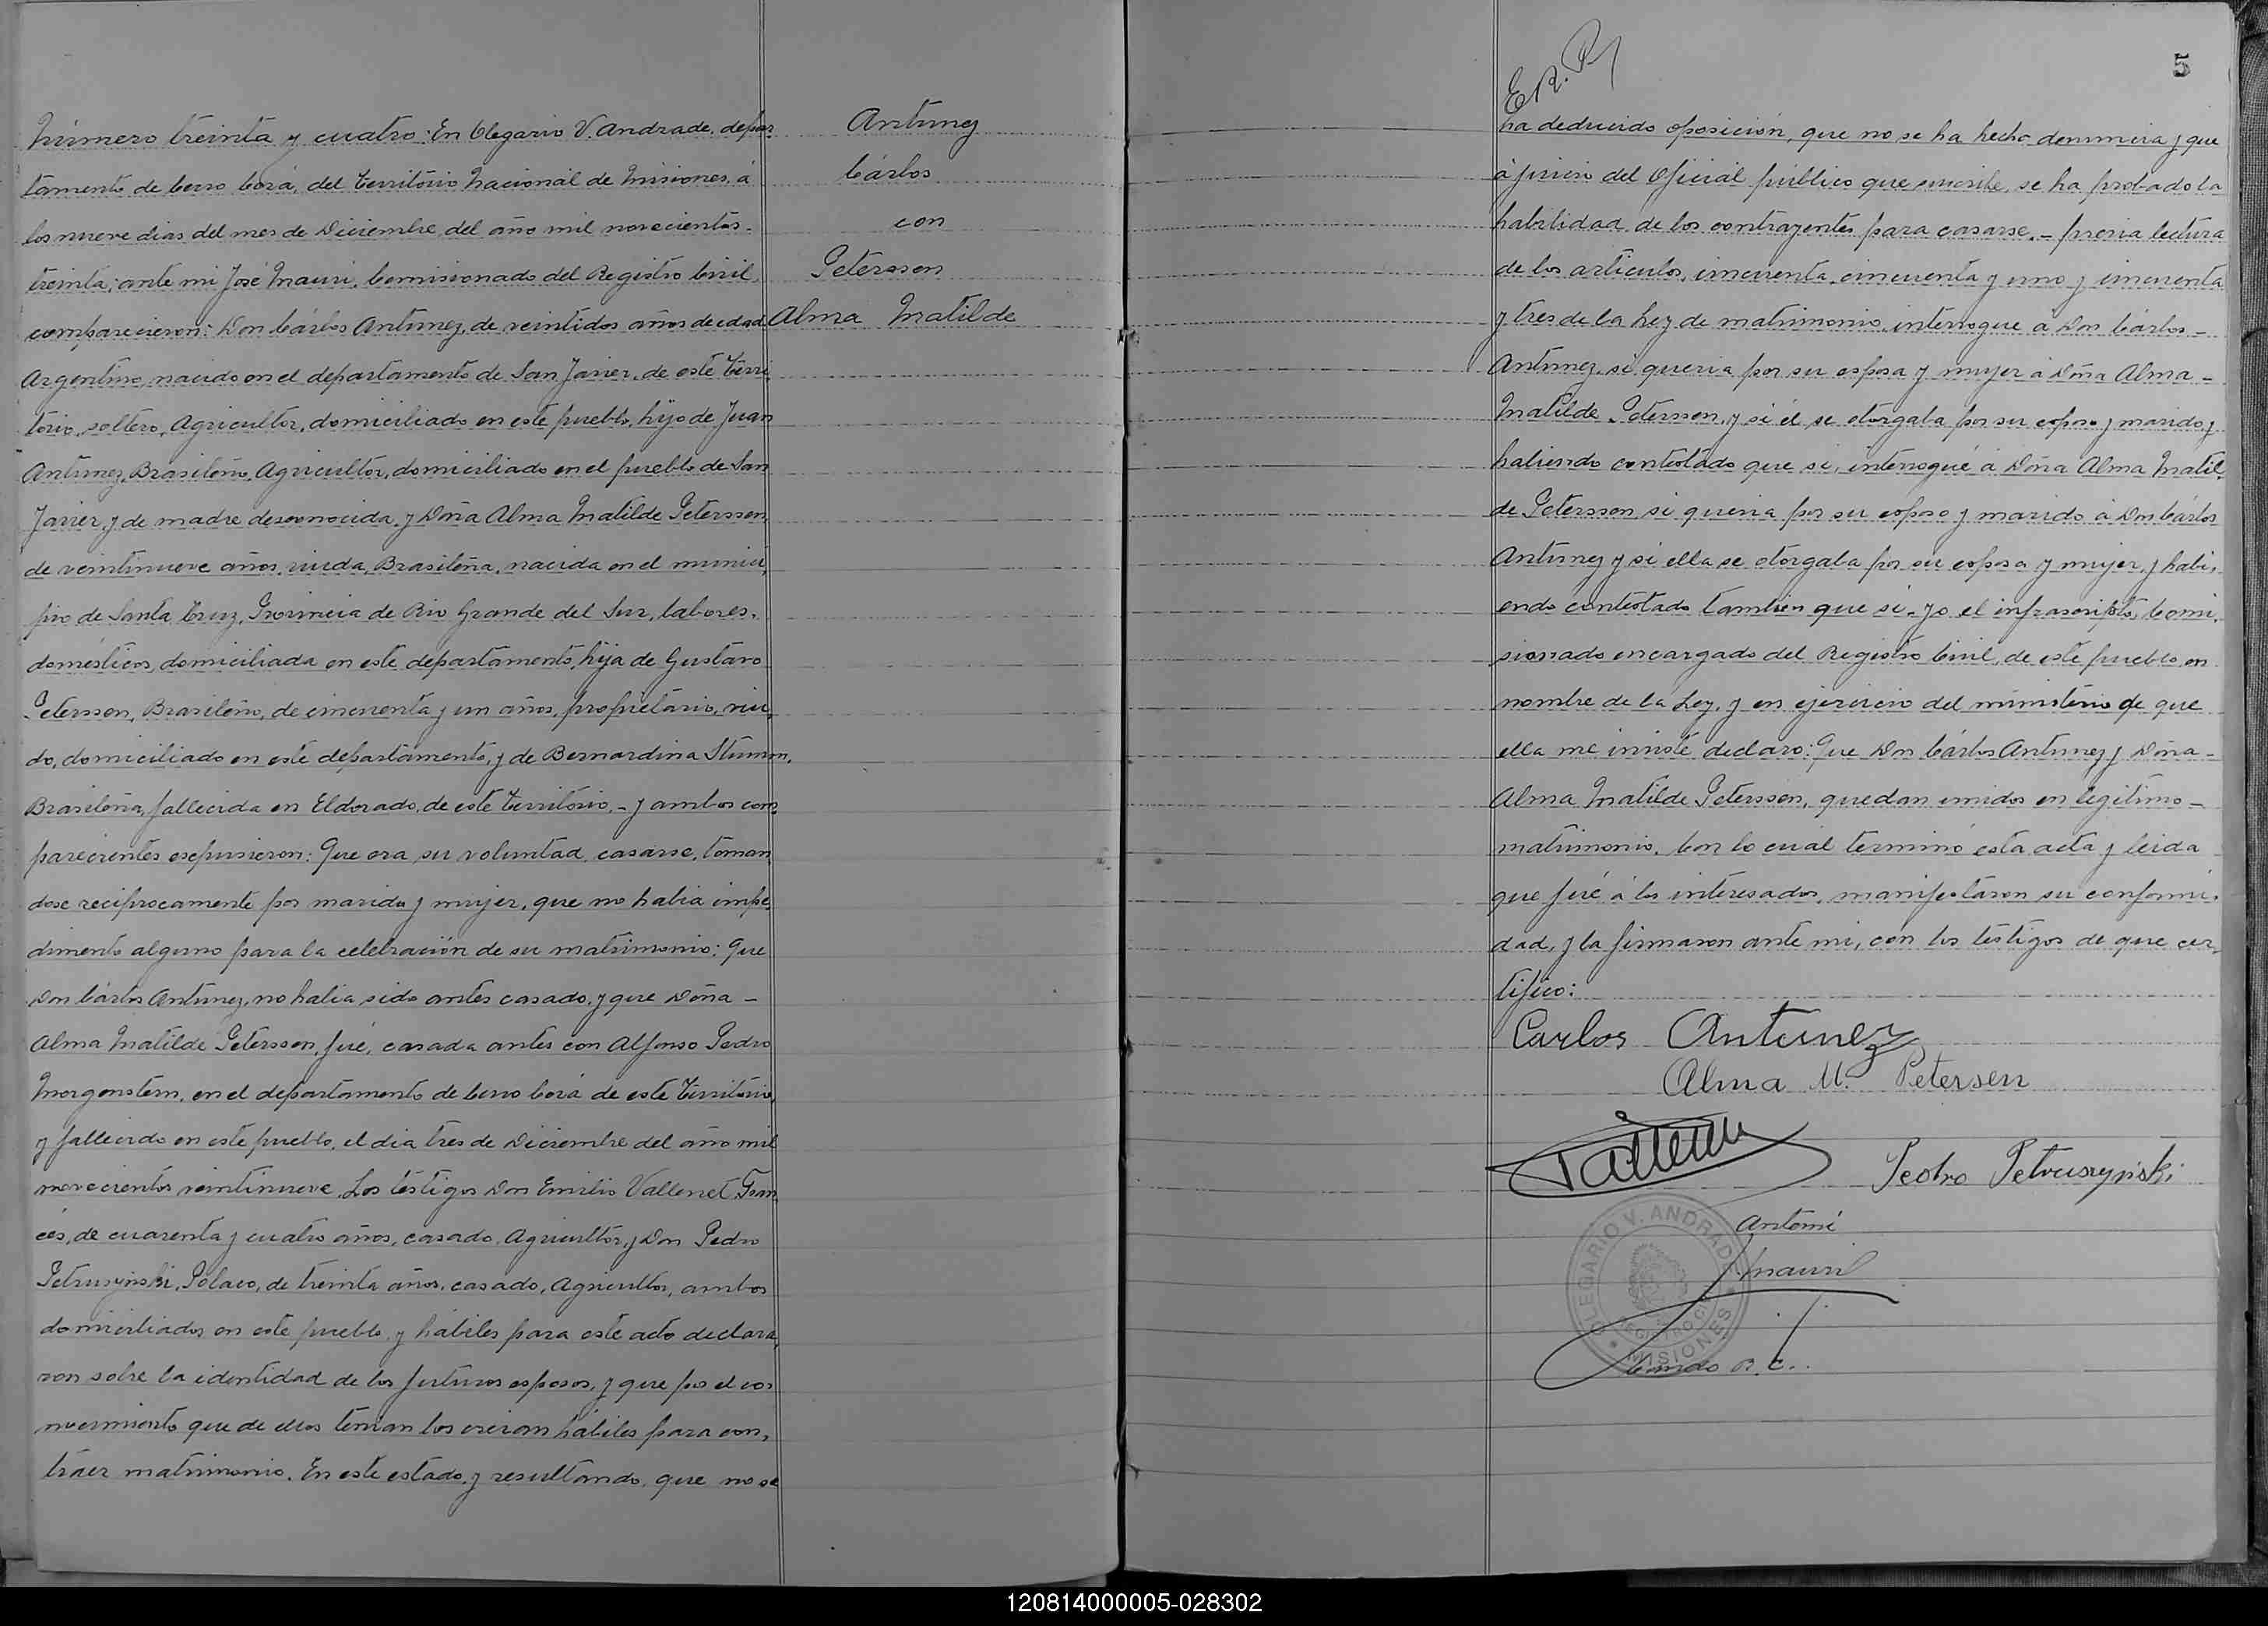 Número treinta y cuatro: En Olegario V. Andrade, depar-
tamento de Cerro Corá, del Territorio Nacional de Misiones, á
los nueve dias del mes de Diciembre, del año mil novecientos-
treinta; ante mi José Mauri, Comisionado del Registro Civil,
comparecieron: Don Cárlos Antunez, de veintidos años de edad
Argentino, nacido en el departamento de San Javier, de este Terri-
torio, soltero, Agricultor, domiciliado en este pueblo, hijo de Juan
Antunez, Brasileño, Agricultor, domiciliado en el pueblo de San
Javier, y de madre desconocida, y Doña Alma Matilde Peterssen,
de veintinueve años, viuda, Brasileña, nacida en el munici,
pio de Santa Cruz, Provincia de Rio Grande del Sur, labores,
domésticos, domiciliada en este departamento, hija de Gustavo
Peterssen, Brasileño, de cincuenta y un años, propietario, viu,
do, domiciliado en este departamento, y de Bernardina Stumm,
Brasileña, fallecida en Eldorado, de este territorio,- y ambos com-
parecientes expusieron: Que era su voluntad casarse, toman
dose reciprocamente por marido y mujer, que no habia impe,
dimento alguno para la celebración de su matrimonio: Que
Don Cárlos Antunez, no habia sido antes casado, y que Doña -
Alma Matilde Peterssen, fué, casada antes con Alfonso Pedro
Morgenstern, en el departamento de Cerro Corá de este Territorio,
y fallecido en este pueblo, el dia tres de Diciembre del año mil
novecientos veintinueve. Los testigos Don Emilio Vallenet, Fran
cés, de cuarenta y cuatro años, casado, Agricultor, y Don Pedro
Petruszynski, Polaco, de treinta años, casado, Agricultor, ambos
domiciliados en este pueblo, y hábiles para este acto declara,
ron sobre la identidad de los futuros esposos, y que por el co,
nocimiento que de ellos tenian los creian hábiles para con,
traer matrimonio. En este estado, y resultando, que no se
Antunez
Cárlos
con
Peterssen
Alma Matilde
E. R. P.
5
ha deducido oposición, que no se ha hecho denuncia y que
á juicio del Oficial público que suscribe, se ha probado la
habilidad de los contrayentes para casarse,- previa lectura
de los articulos, cincuenta, cincuenta y uno y cincuenta
y tres de la Ley de matrimonio, interrogue á Don Cárlos -
Antunez, si queria por su esposa y mujer á Doña Alma -
Matilde Peterssen, y si él se otorgaba por su esposo y marido, y
habiendo contestado que si, interrogué á Doña Alma Matil,
de Peterssen, si queria por su esposo y marido á Don Cárlos
Antunez y si ella se otorgaba por su esposa y mujer, y habi,
endo contestado tambien que si,- yo el infrascripto, Comi,
sionado encargado del Registro Civil, de este pueblo, en
nombre de la Ley, y en ejercicio del ministerio de que
ella me inviste, declaro: Que Don Cárlos Antunez y Doña -
Alma Matilde Peterssen, quedan unidos en legitimo -
matrimonio. Con lo cual terminó esta acta y leida
que fué á los interesados, manifestaron su conformi,
dad, y la firmaron ante mi, con los testigos de que cer,
tifico:
Carlos Antunez
Alma M. Petersen
Pedro Petruszynski
Antemi
J Mauri
Comdo R. C.
OLEGARIO V. ANDRADE
REGISTRO CIVIL
MISIONES
120814000005-028302